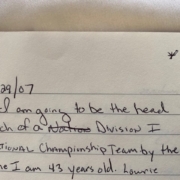 29/07
I am going to be the head
ch of a Division I
tional Championship Team by the
me I am 43 years old. Lowrie